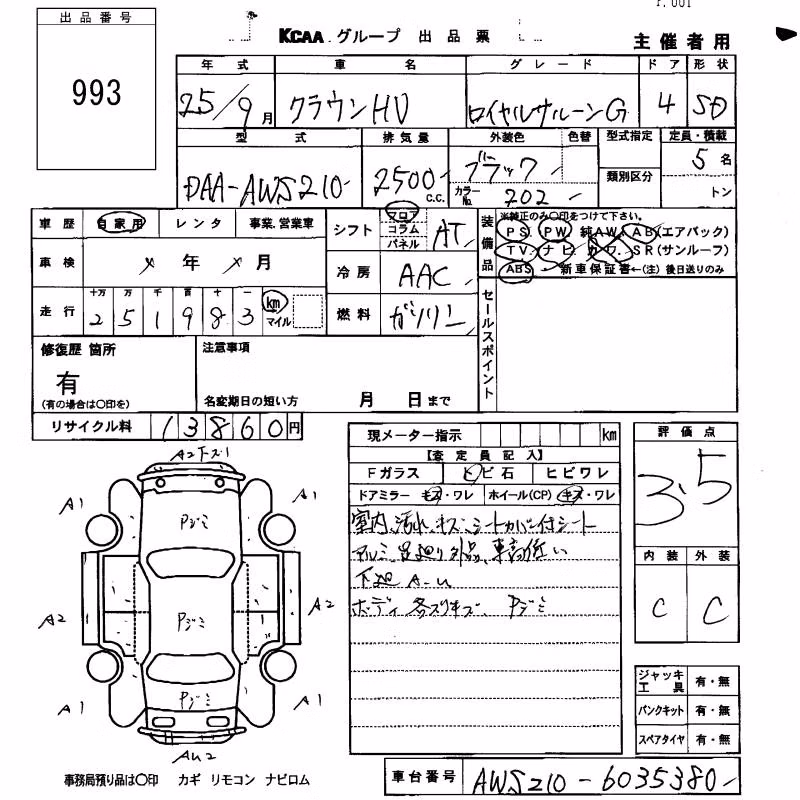 P.001
出品番号
993
KCAA グループ 出品票
主催者用
年式 車名 グレード ドア 形状
25/9月 クラウンHV ロイヤルサルーンG 4 SD
型式 排気量 外装色 色替 型式指定 定員・積載
DAA-AWS210 2500 C.C. ブラック カラーNo. 202 類別区分 5名 トン
車歴 自家用 レンタ 事業.営業車
シフト フロア コラム パネル AT
装備品 ※純正のみ○印をつけて下さい。
PS. PW. 純AW. AB(エアバック)
TV. ナビ. カワ. SR(サンルーフ)
ABS 新車保証書←(注)後日送りのみ
車検 年 月
冷房 AAC
走行 十万 万 千 百 十 一
251983 km マイル
燃料 ガソリン
セールスポイント
修復歴 箇所
有
(有の場合は○印を)
注意事項
名変期日の短い方 月 日まで
リサイクル料 13860円
現メーター指示 km
評価点
3.5
【査定員記入】
Fガラス トビ石 ヒビワレ
ドアミラー キズ・ワレ ホイール(CP) キズ・ワレ
室内、汚れ、キズ、シートカバー付シート
アルミ、足廻り外品、車高低い
下廻 A-u
ボディ 各スリキズ、Pジミ
内装 外装
C C
A2下ズ1
A1 A1
Pジミ
A2 A2
Pジミ
A1 A1
Pジミ
AU2
ジャッキ工具 有・無
パンクキット 有・無
スペアタイヤ 有・無
事務局預り品は○印 カギ リモコン ナビロム
車台番号 AWS210-6035380